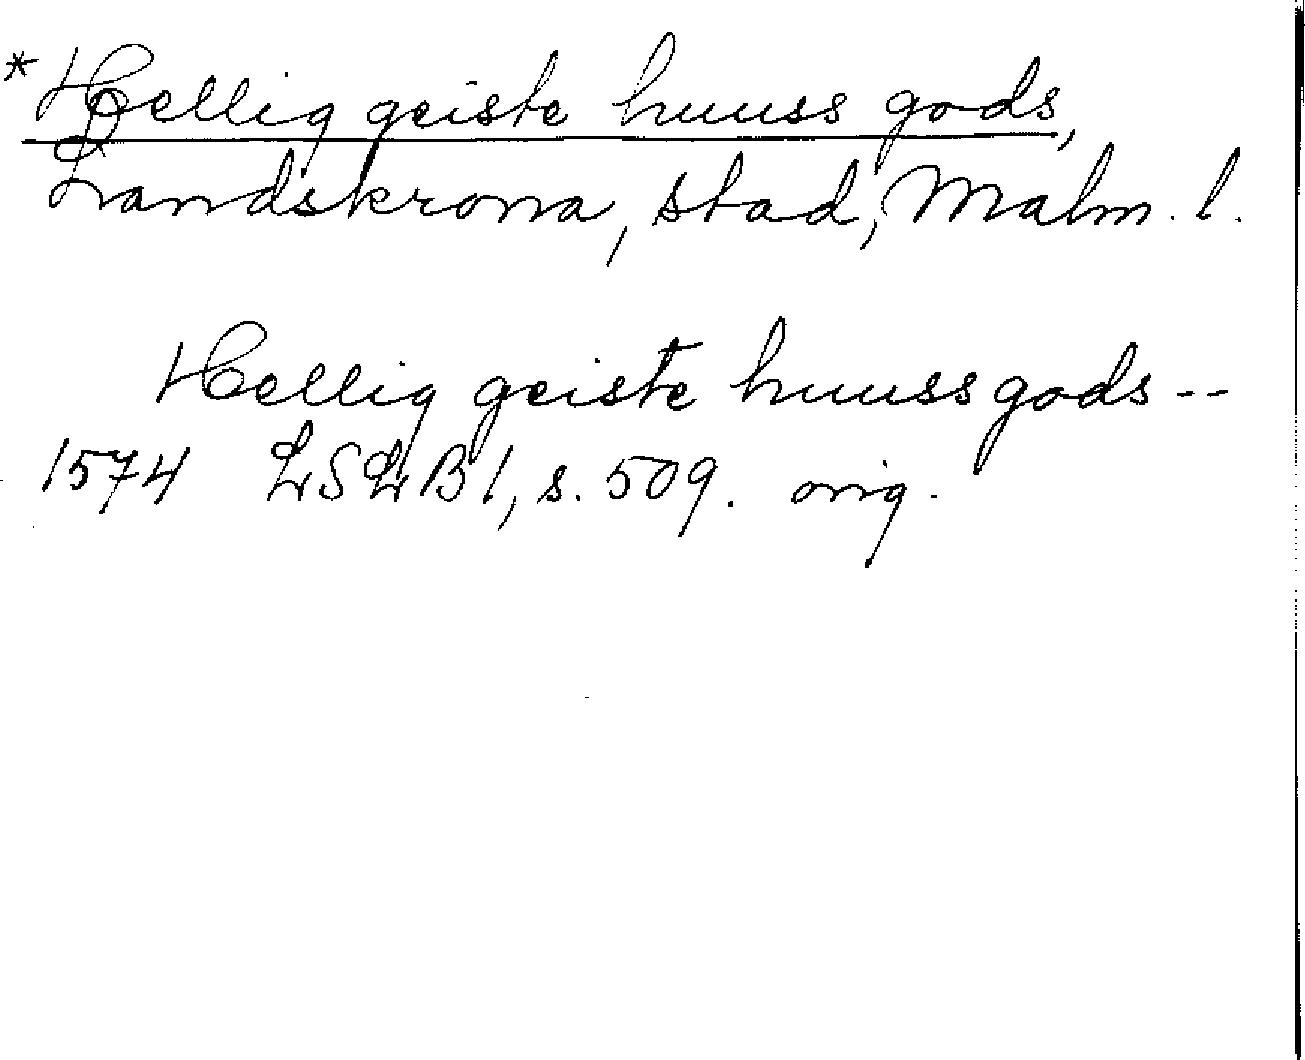 *Hellig geiste huuss gods,
Landskrona, stad, Malm. l.
Hellig geiste huuss gods --
1574 LSLB 1, s. 509. orig.